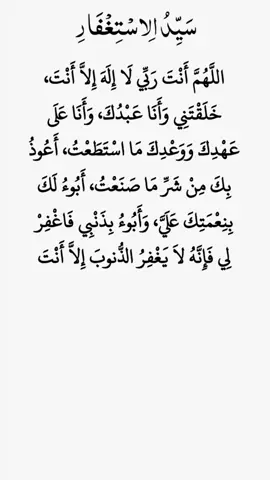 سَيِّدُ الِاسْتِغْفَارِ
اللَّهُمَّ أَنْتَ رَبِّي لَا إِلَهَ إِلاَّ أَنْتَ،
خَلَقْتَنِي وَأَنَا عَبْدُكَ، وَأَنَا عَلَى
عَهْدِكَ وَوَعْدِكَ مَا اسْتَطَعْتُ، أَعُوذُ
بِكَ مِنْ شَرِّ مَا صَنَعْتُ، أَبُوءُ لَكَ
بِنِعْمَتِكَ عَلَيَّ، وَأَبُوءُ بِذَنْبِي فَاغْفِرْ
لِي فَإِنَّهُ لاَ يَغْفِرُ الذُّنوبَ إِلاَّ أَنْتَ